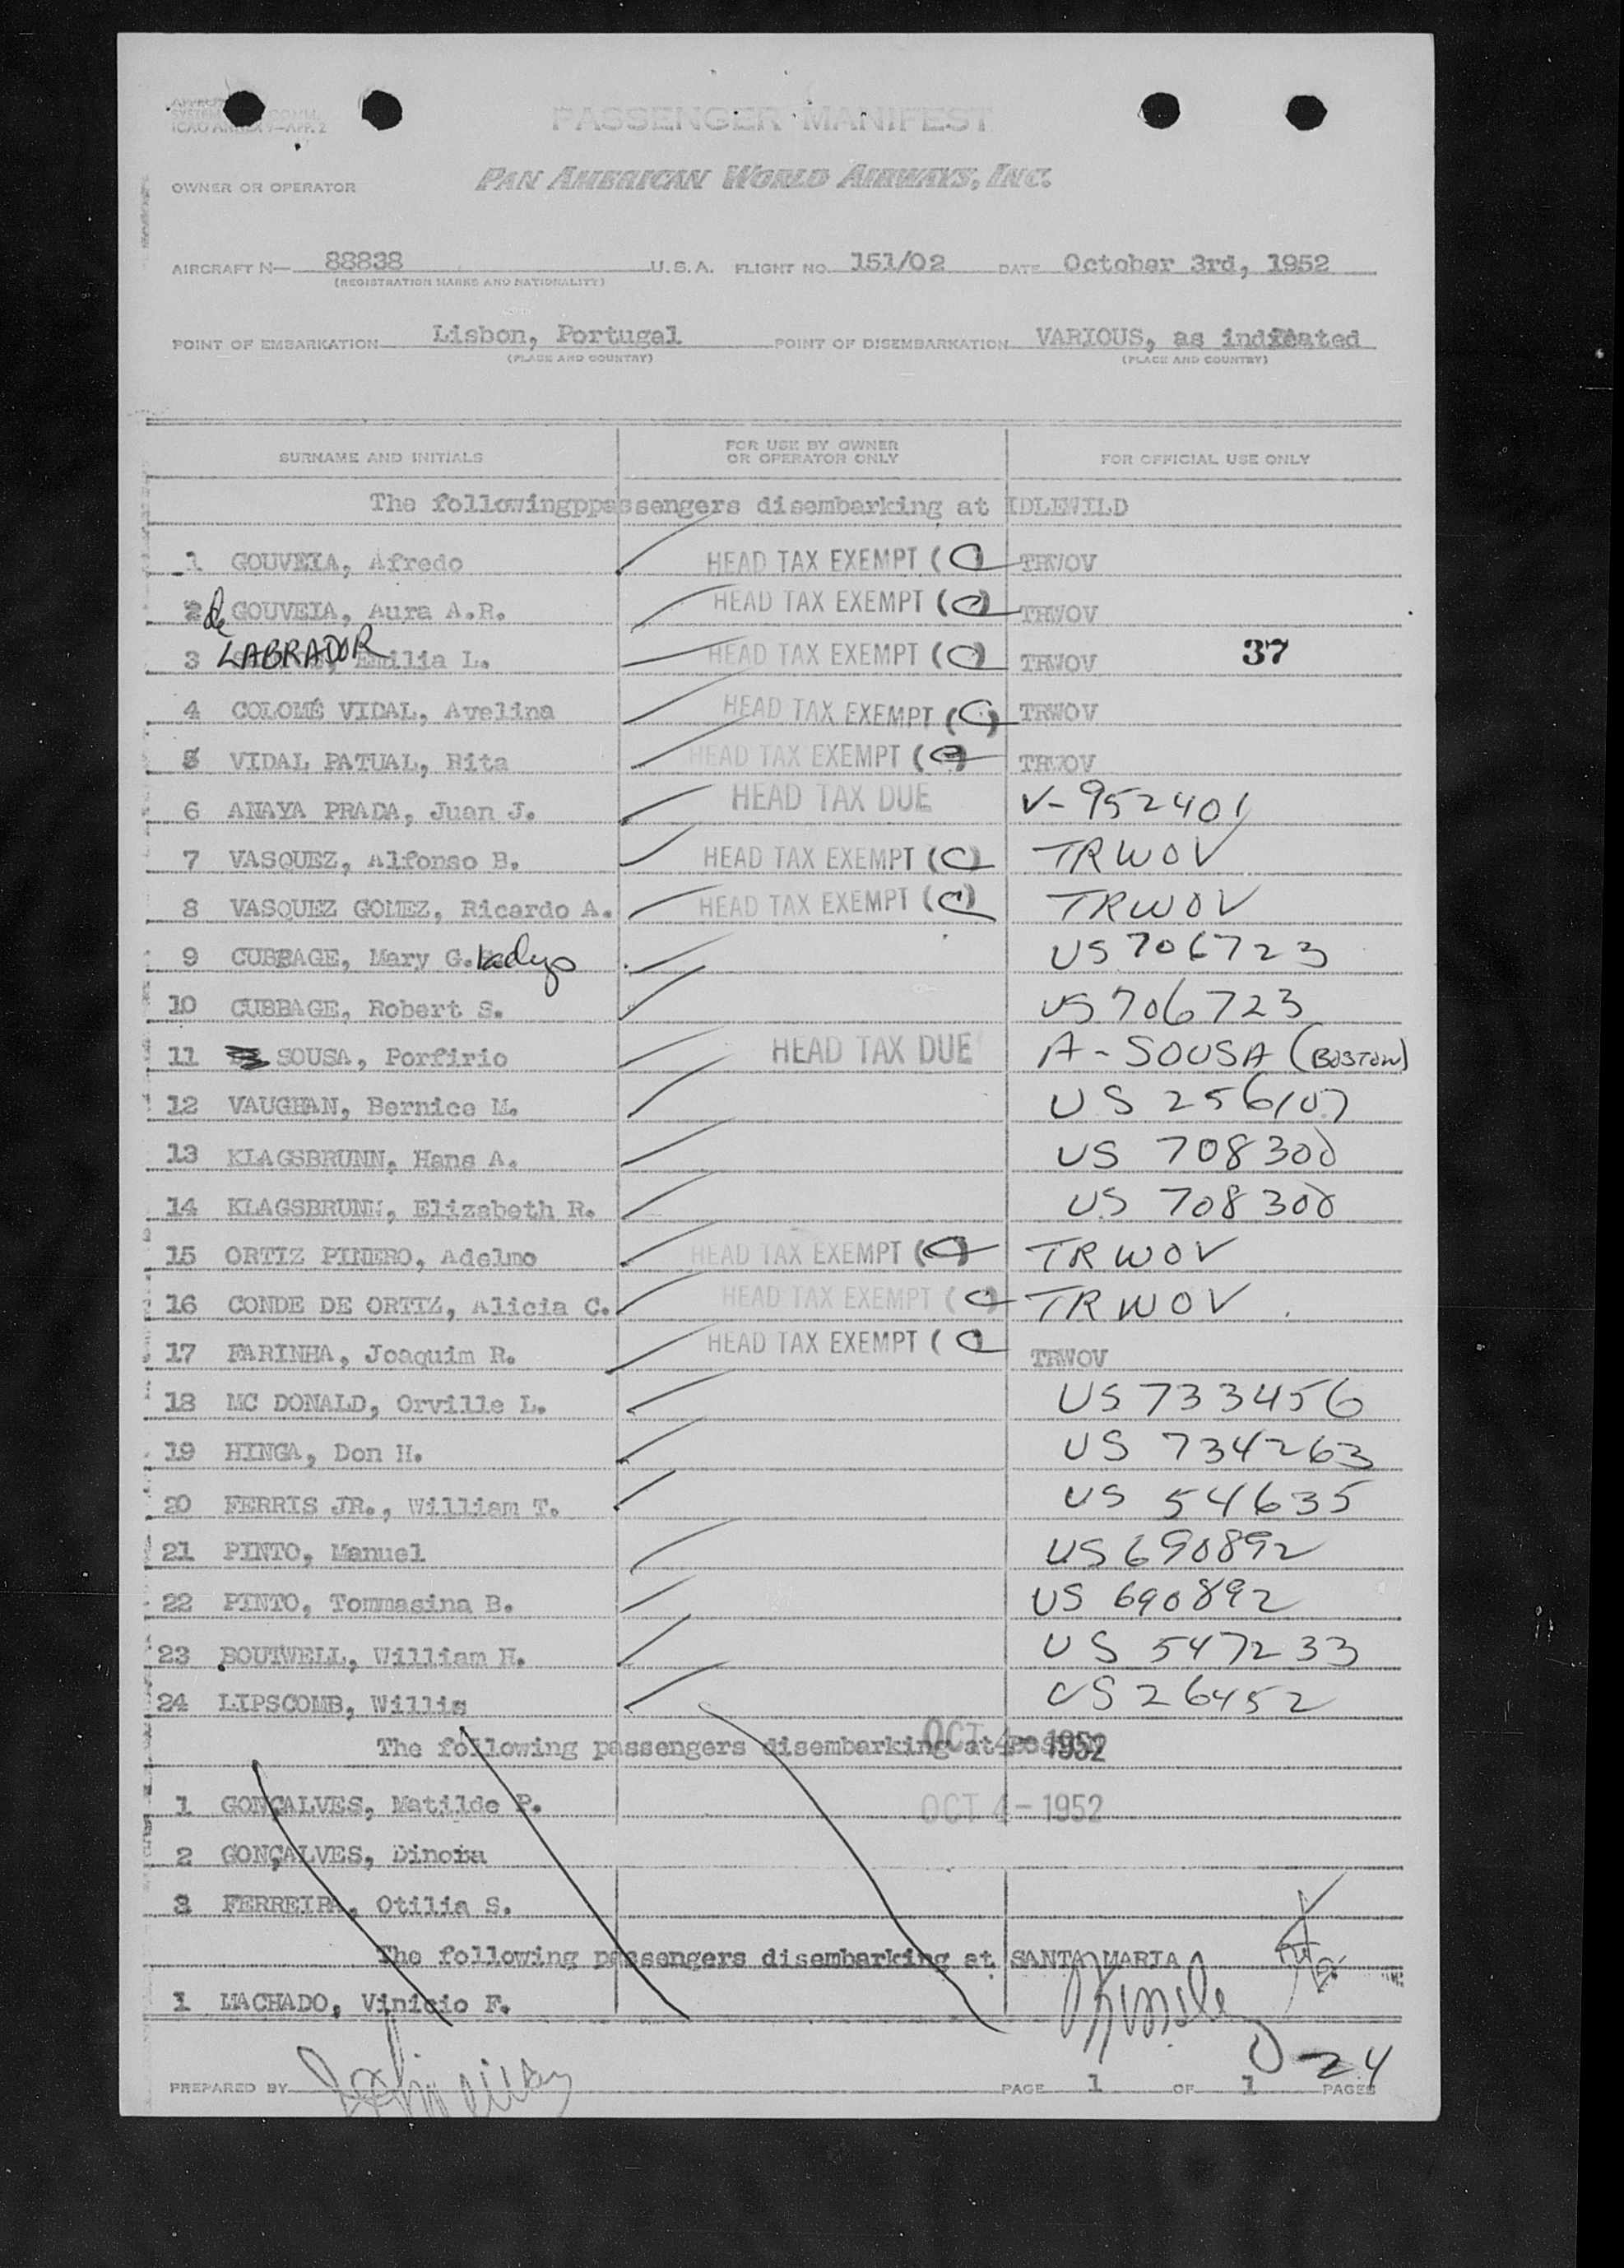 ICAO ANNEX 9—APP. 2
PASSENGER MANIFEST
OWNER OR OPERATOR PAN AMERICAN WORLD AIRWAYS, INC.
AIRCRAFT N— 88838 U.S.A. FLIGHT NO. 151/02 DATE October 3rd, 1952
(REGISTRATION MARKS AND NATIONALITY)
POINT OF EMBARKATION Lisbon, Portugal POINT OF DISEMBARKATION VARIOUS, as indicated
(PLACE AND COUNTRY) (PLACE AND COUNTRY)
SURNAME AND INITIALS FOR USE BY OWNER OR OPERATOR ONLY FOR OFFICIAL USE ONLY
The followingppassengers disembarking at IDLEWILD
1 GOUVEIA, Afredo HEAD TAX EXEMPT (C) TRWOV
2 de GOUVEIA, Aura A.R. HEAD TAX EXEMPT (C) TRWOV
3 LABRADOR Emilia L. HEAD TAX EXEMPT (C) TRWOV 37
4 COLOMÉ VIDAL, Avelina HEAD TAX EXEMPT (C) TRWOV
5 VIDAL PATUAL, Rita HEAD TAX EXEMPT (C) TRWOV
6 ANAYA PRADA, Juan J. HEAD TAX DUE V-952401
7 VASQUEZ, Alfonso B. HEAD TAX EXEMPT (C) TRWOV
8 VASQUEZ GOMEZ, Ricardo A. HEAD TAX EXEMPT (C) TRWOV
9 CUBBAGE, Mary G. ladys US 706723
10 CUBBAGE, Robert S. US 706723
11 SOUSA, Porfirio HEAD TAX DUE A-SOUSA (BOSTON)
12 VAUGHAN, Bernice M. US 256107
13 KLAGSBRUNN, Hans A. US 708300
14 KLAGSBRUNN, Elizabeth R. US 708300
15 ORTIZ PINERO, Adelmo HEAD TAX EXEMPT (C) TRWOV
16 CONDE DE ORTIZ, Alicia C. HEAD TAX EXEMPT (C) TRWOV
17 FARINHA, Joaquim R. HEAD TAX EXEMPT (C) TRWOV
18 MC DONALD, Orville L. US 733456
19 HINGA, Don H. US 734263
20 FERRIS JR., William T. US 54635
21 PINTO, Manuel US 690892
22 PINTO, Tommasina B. US 690892
23 BOUTWELL, William H. US 547233
24 LIPSCOMB, Willis US 26452
The following passengers disembarking at OCT 4-1952
1 GONÇALVES, Matilde P. OCT 4-1952
2 GONÇALVES, Dinora
3 FERREIRA, Otilia S.
The following passengers disembarking at SANTA MARIA
1 MACHADO, Vinicio F.
24
PREPARED BY PAGE 1 OF 1 PAGES